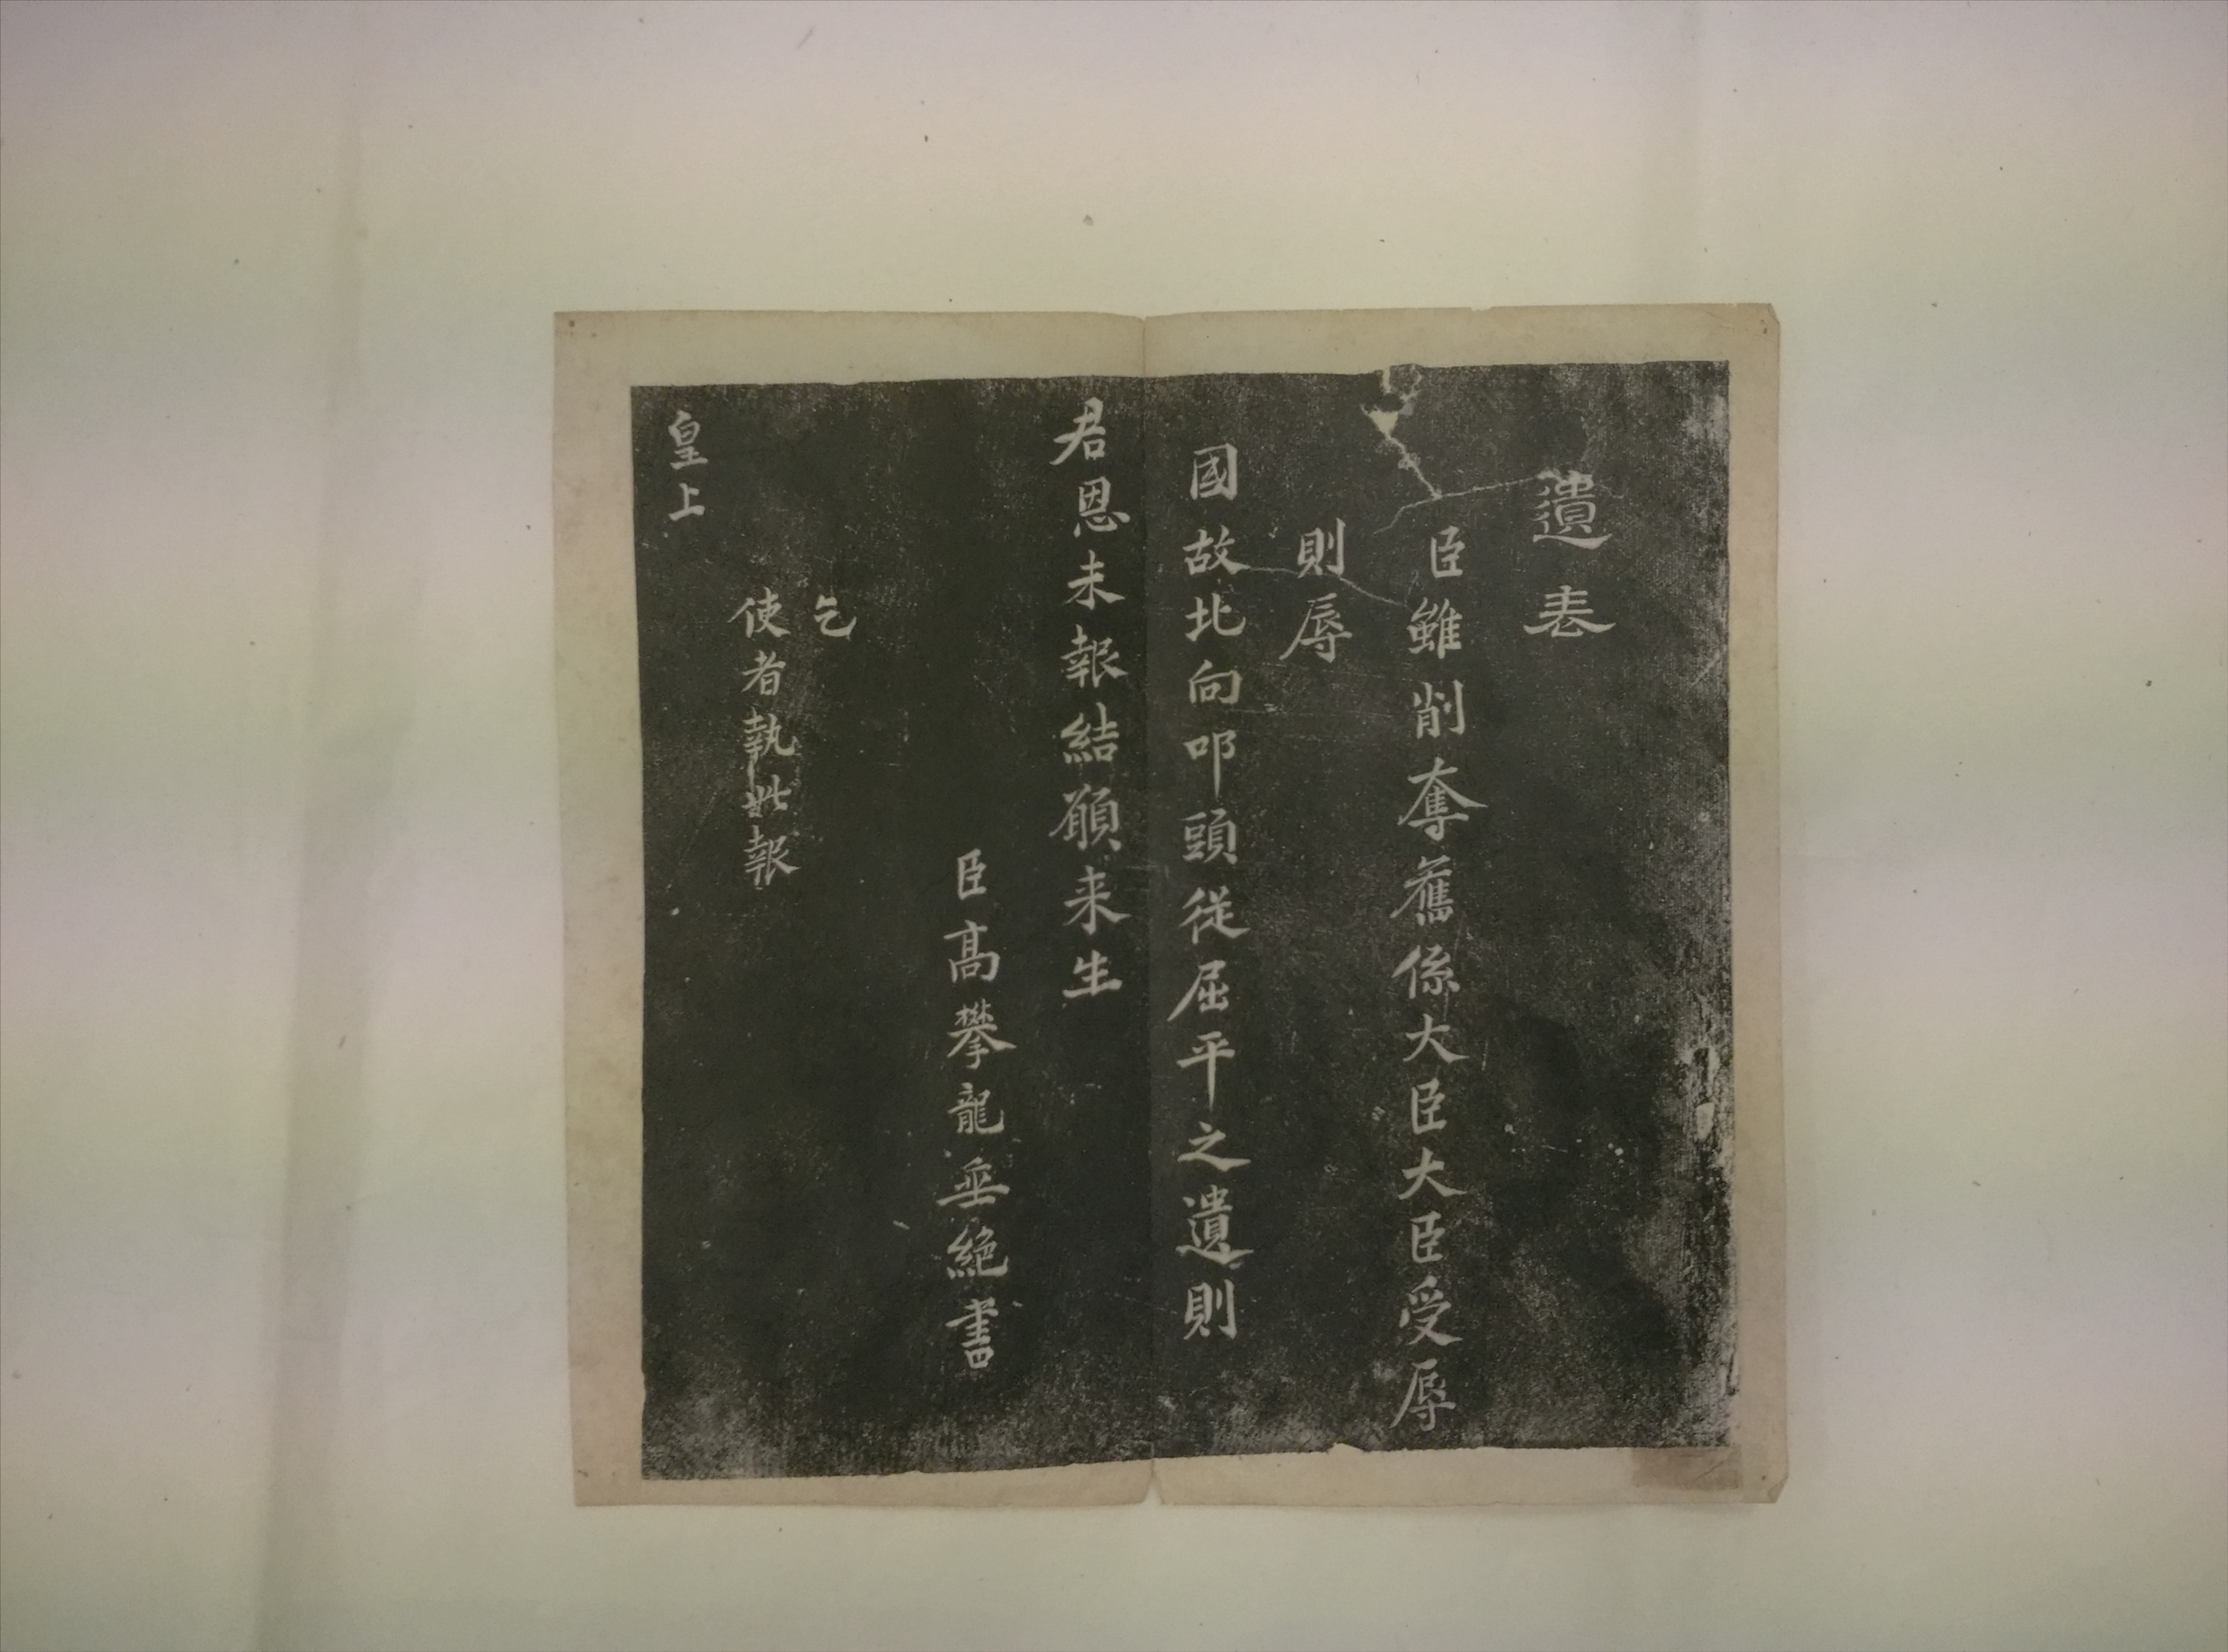 遺表
臣雖削奪舊係大臣大臣受辱
則辱
國故北向叩頭從屈平之遺則
君恩未報結願来生
臣高攀龍垂絕書
乞
使者執此報
皇上